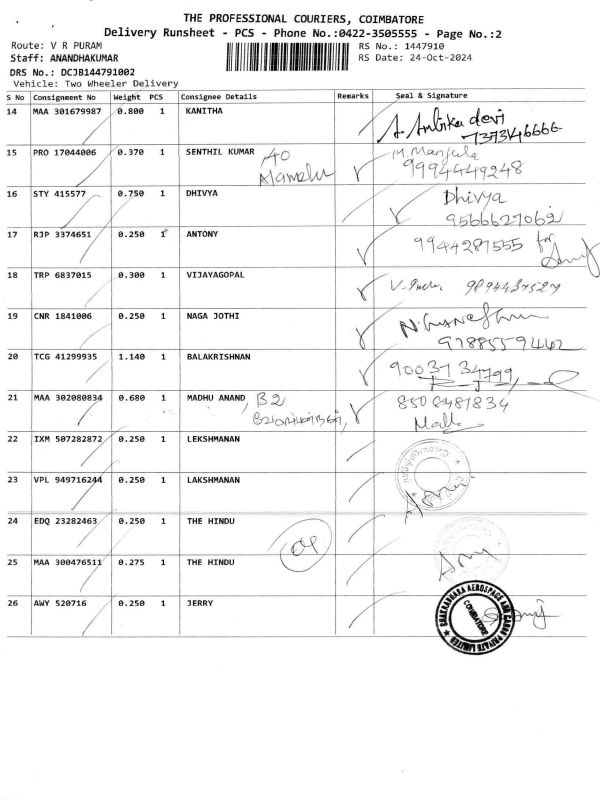 THE PROFESSIONAL COURIERS, COIMBATORE
Delivery Runsheet - PCS - Phone No.:0422-3505555 - Page No.:2
Route: V R PURAM RS No.: 1447910
Staff: ANANDHAKUMAR RS Date: 24-Oct-2024
DRS No.: DCJB144791002
Vehicle: Two Wheeler Delivery
S No Consignment No Weight PCS Consignee Details Remarks Seal & Signature
14 MAA 301679987 0.800 1 KANITHA A. Ambika devi
737346666
15 PRO 17044006 0.370 1 SENTHIL KUMAR 40 M. Manjula
9994449248
16 STY 415577 0.750 1 DHIVYA Dhivya
9566627062
17 RJP 3374651 0.250 1 ANTONY 9944287555 for
18 TRP 6837015 0.300 1 VIJAYAGOPAL
19 CNR 1841006 0.250 1 NAGA JOTHI
9788559462
20 TCG 41299935 1.140 1 BALAKRISHNAN
21 MAA 302080834 0.680 1 MADHU ANAND, B2
22 IXM 507282872 0.250 1 LEKSHMANAN
23 VPL 949716244 0.250 1 LAKSHMANAN
24 EDQ 23282463 0.250 1 THE HINDU
25 MAA 300476511 0.275 1 THE HINDU
26 AWY 520716 0.250 1 JERRY
CHAKRADHARA AEROSPACE AND CARGO PRIVATE LIMITED
COIMBATORE